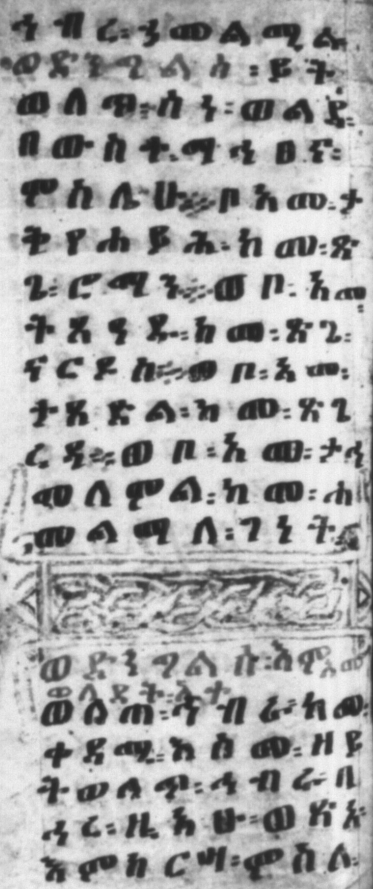 ኅብረ፡ ን መ ል ሚ ል
ወድንግልሰ፡ ይት
ወለጥ፡ ስነ፡ ወልዳ፡
በውስተ፡ ማኅፀና፡
ምስሌሁ። ቦ እመ፡ ታ
ቅየሐይሕ፡ ከመ፡ ጽ
ጌ፡ ሮማን። ወቦ፡ እመ
ትጸዓዱ፡ ከመ፡ ጽጌ፡
ናርዶስ። ወቦ፡ እመ፡
ተጸድል፡ ከመ፡ ጽጌ
ረዳ። ወቦ፡ እመ፡ ታኅ
መለምል፡ ከመ፡ ሐ
መልማለ፡ ገነት
ወድንግልሰ፡ እምአመ
ወለደት፡ ኢተ
ወለጠ፡ ኅብራ፡ ከመ፡
ቀዳሚ፡ እስመ፡ ዘይ
ትወለጥ፡ ኅብራ፡ በ
ኅረ፡ ዚአሁ፡ ወጽአ፡
እምከርሣ፡ ምስለ፡